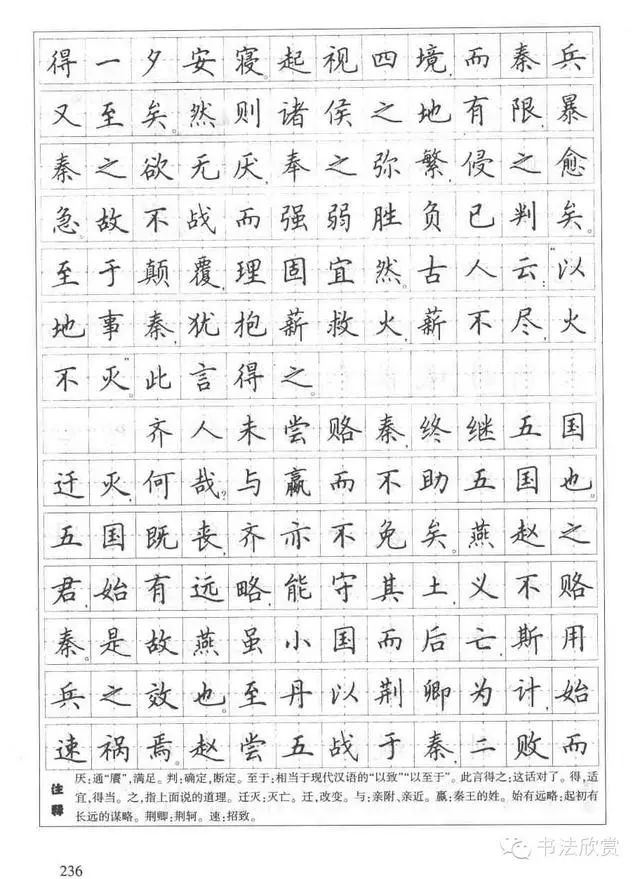 得一夕安寝。起视四境，而秦兵
又至矣。然则诸侯之地有限，暴
秦之欲无厌，奉之弥繁，侵之愈
急。故不战而强弱胜负已判矣。
至于颠覆，理固宜然。古人云：“以
地事秦，犹抱薪救火，薪不尽，火
不灭。”此言得之。
齐人未尝赂秦，终继五国
迁灭，何哉？与嬴而不助五国也。
五国既丧，齐亦不免矣。燕赵之
君，始有远略，能守其土，义不赂
秦。是故燕虽小国而后亡，斯用
兵之效也。至丹以荆卿为计，始
速祸焉。赵尝五战于秦，二败而
注释
厌：通“餍”，满足。判：确定，断定。至于：相当于现代汉语的“以致”“以至于”。此言得之：这话对了。得，适
宜，得当。之，指上面说的道理。迁灭：灭亡。迁，改变。与：亲附、亲近。嬴：秦王的姓。始有远略：起初有
长远的谋略。荆卿：荆轲。速：招致。
236
书法欣赏